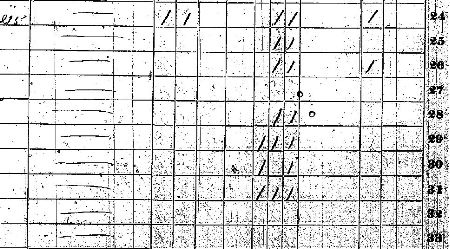 / / / / / 24
/ / 25
/ / / 26
27
/ / 28
/ / / 29
/ / 30
/ / / 31
32
33